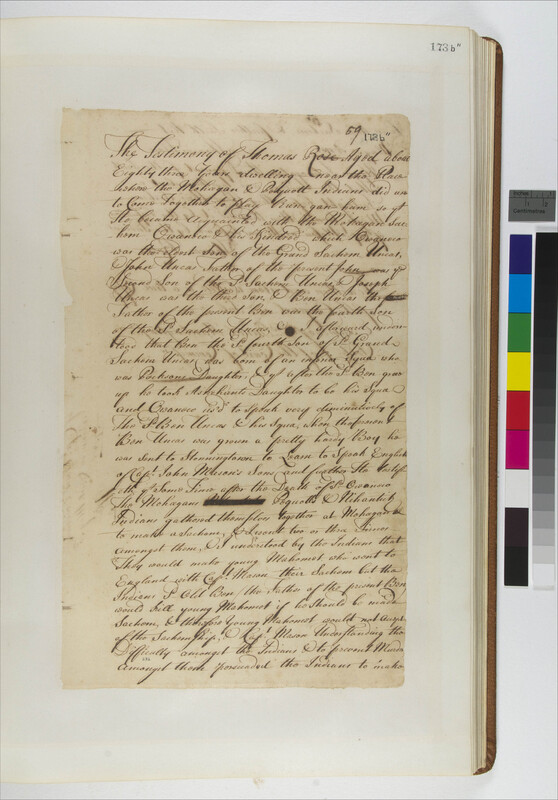 173b"
59
173b"
The Testimony of Thomas Rose Aged about
Eighty three Years dwelling near the Place
where the Mohegan & Pequott Indians did use
to Come together to play Game so yt
He became Acquainted with the Mohegan Sac-
hem Owaneco & his Kindred which Owaneco
was the eldest Son of the Grand Sachem Uncas,
& John Uncas Father of the present John was ye
Second Son of the Sd Sachem Uncas, & Joseph
Uncas was the third Son, & Ben Uncas the
Father of the present Ben was the fourth Son
of the Sd Sachem Uncas, & I afterward under-
stood that Ben the Sd fourth Son of Sd Grand
Sachem Uncas was born of an inferior Squa who
was Daughter, & yt after the Sd Ben grew
up he took Daughter to be his Squa
and Owaneco us'd to Speak very diminutively of
the Sd Ben Uncas & his Squa, when the present
Ben Uncas was grown a pretty hardy Boy he
was Sent to Stonningtown to Learn to Speak English
of Capt John Mason's Sons, and further He testif-
eth yt Some Time after the Death of Sd Owaneco
The Mohegans Pequotts & Nihantick
Indians gathered themselves together at Mohegan
to make a Sachem, & Spent two or three
amongst them, & it understood by the Indians that
They would make young Mahomet who went to
England with Capt Mason their Sachem but the
Indians Sd Old Ben (the Father of the present Ben
would kill young Mahomet if he Should be made
Sachem, & therefore young Mahomet would not accept
of the Sachemship, & Capt Mason Understanding the
Difficulty amongst the Indians & to prevent
Amongst them perswaded the Indians to make